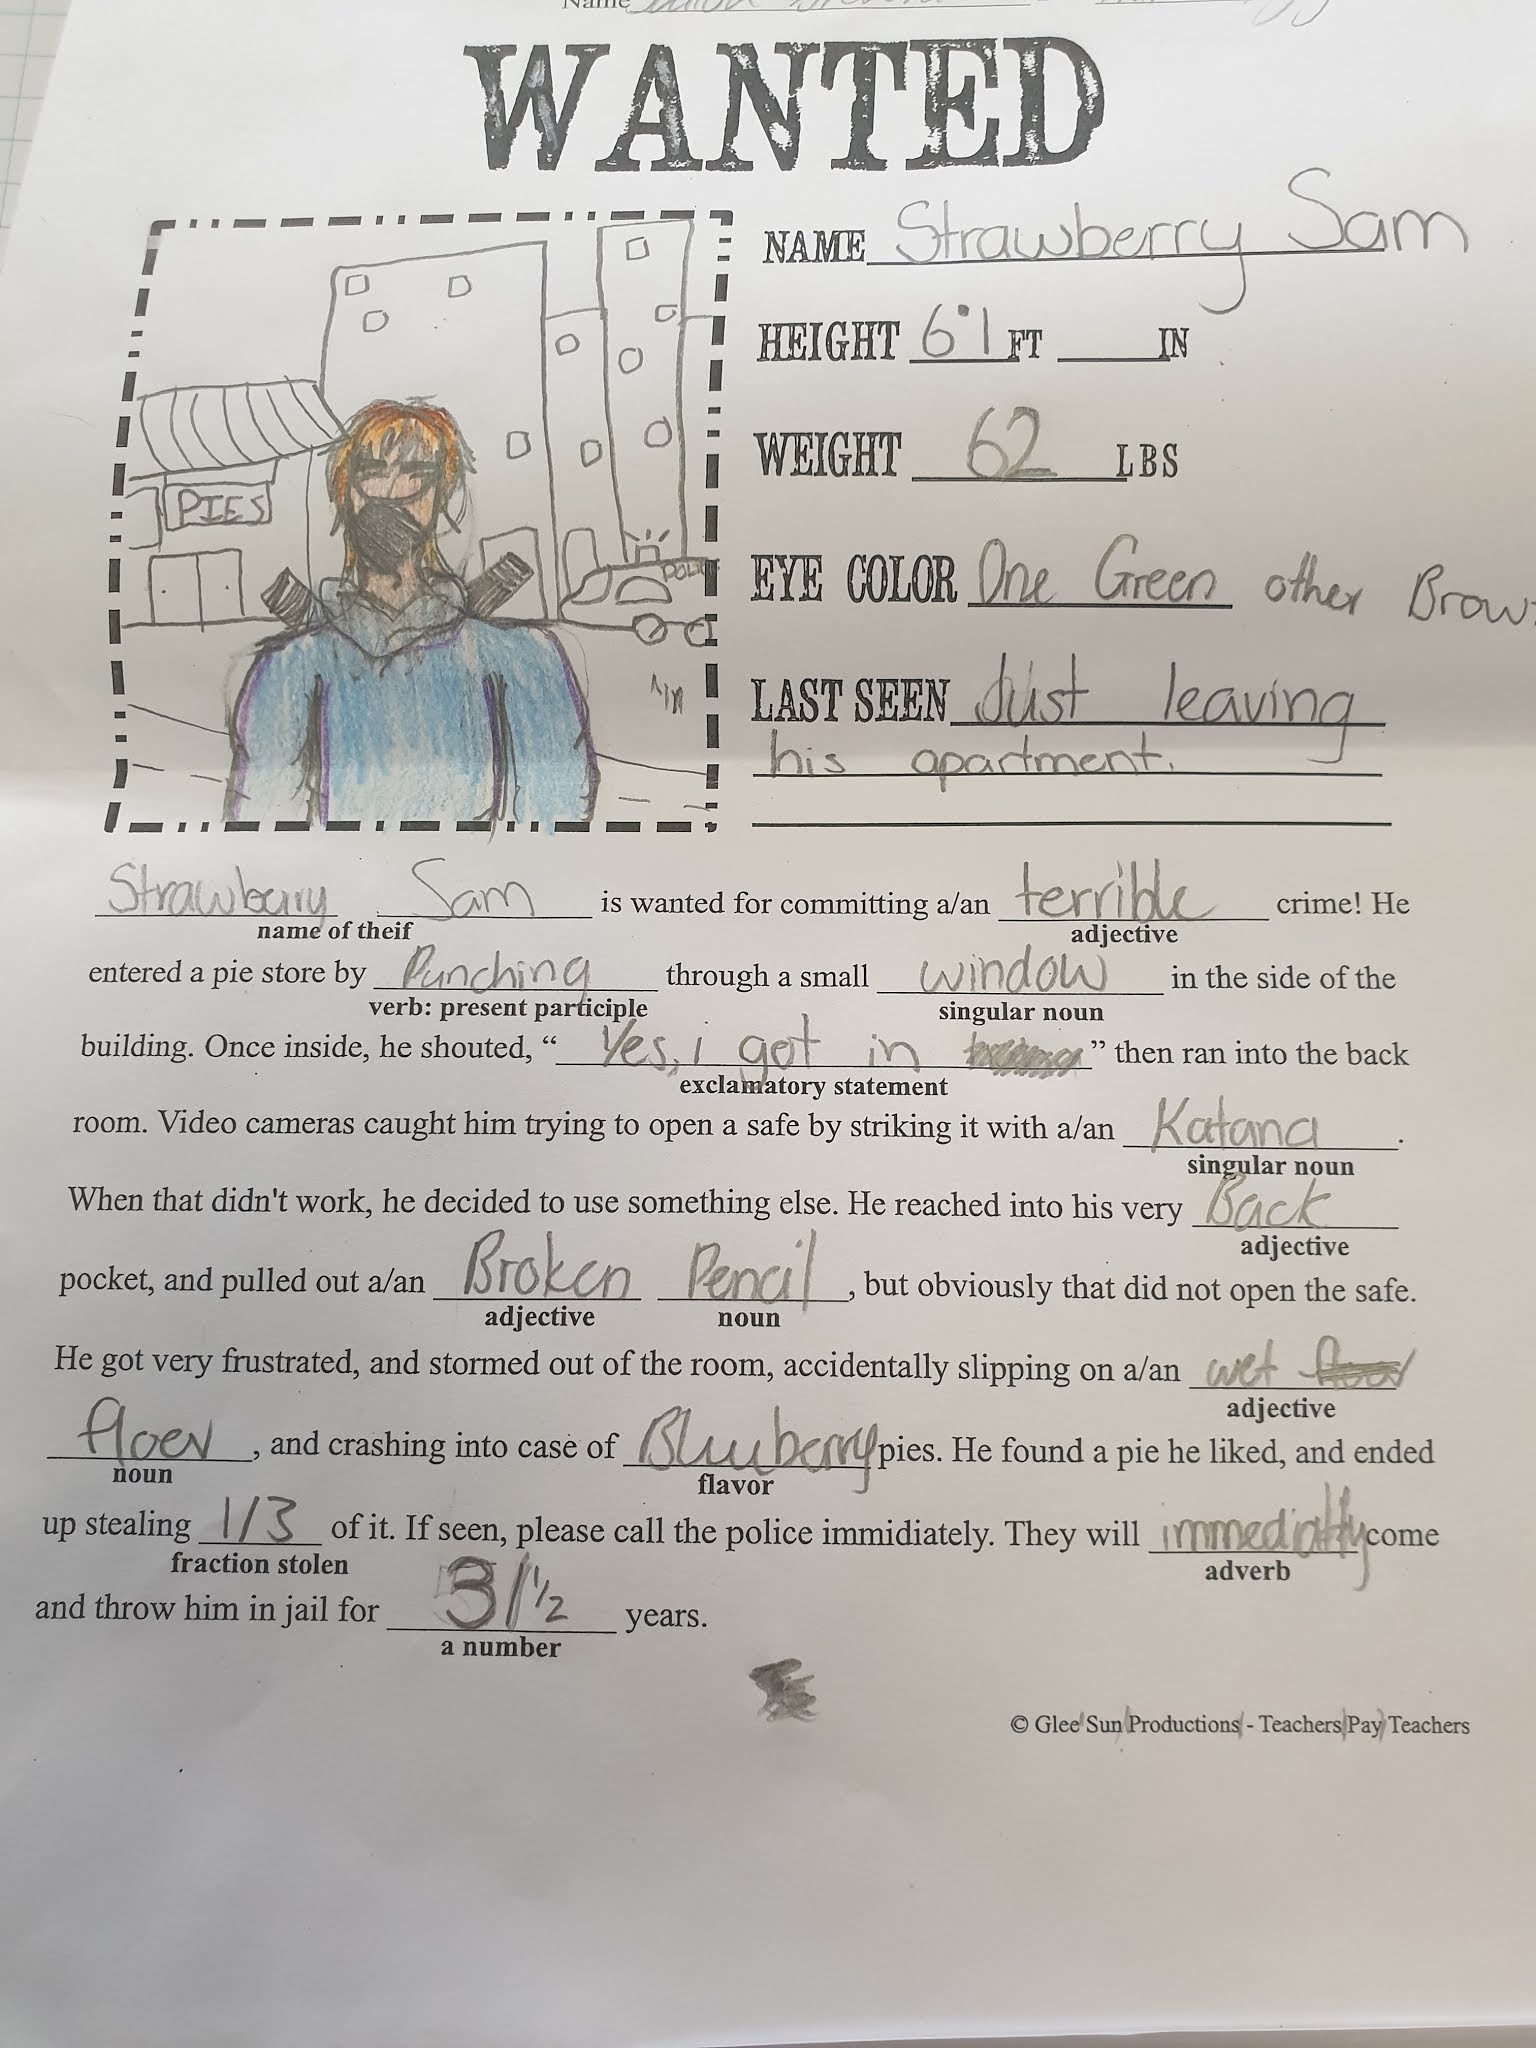 Name
WANTED
PIES
POLI
NAME Strawberry Sam
HEIGHT 6'1 FT ____ IN
WEIGHT 62 LBS
EYE COLOR One Green other Brow
LAST SEEN Just leaving
his apartment.
Strawbarry Sam is wanted for committing a/an terrible crime! He
name of theif adjective
entered a pie store by Punching through a small window in the side of the
verb: present participle singular noun
building. Once inside, he shouted, “Yes, i got in ” then ran into the back
exclamatory statement
room. Video cameras caught him trying to open a safe by striking it with a/an Katana.
singular noun
When that didn't work, he decided to use something else. He reached into his very Back
adjective
pocket, and pulled out a/an Broken Pencil, but obviously that did not open the safe.
adjective noun
He got very frustrated, and stormed out of the room, accidentally slipping on a/an wet
adjective
floer, and crashing into case of Bluuberry pies. He found a pie he liked, and ended
noun flavor
up stealing 1/3 of it. If seen, please call the police immidiately. They will come
fraction stolen adverb
and throw him in jail for 3/½ years.
a number
© Glee Sun Productions - Teachers Pay Teachers